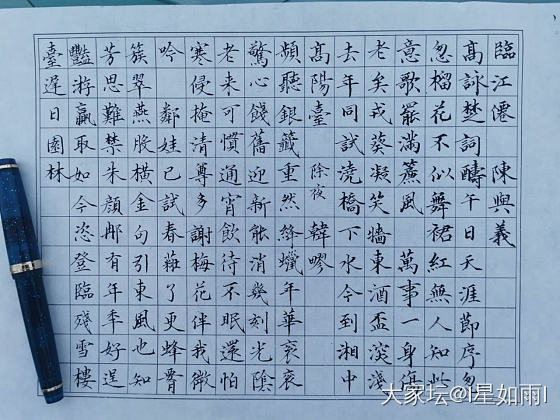 臨江僊 陳與義
高詠楚詞醻午日天涯節序匆
忽榴花不似舞裙紅無人知此
意歌罷滿簾風 萬事一身傷
老矣戎葵凝笑牆東酒盃深淺
去年同試澆橋下水今到湘中
高陽臺 除夜 韓疁
頻聽銀籤重然絳蠟年華袞袞
驚心餞舊迎新能消幾刻光陰
老来可慣通宵飲待不眠還怕
寒侵掩清尊多謝梅花伴我微
吟 鄰娃已試春粧了更蜂
簇翠燕股橫金勾引東風也知
芳思難禁朱顏那有年秊好逞
豔游贏取如今恣登臨殘雪樓
臺遲日園林
大家坛@I星如雨I